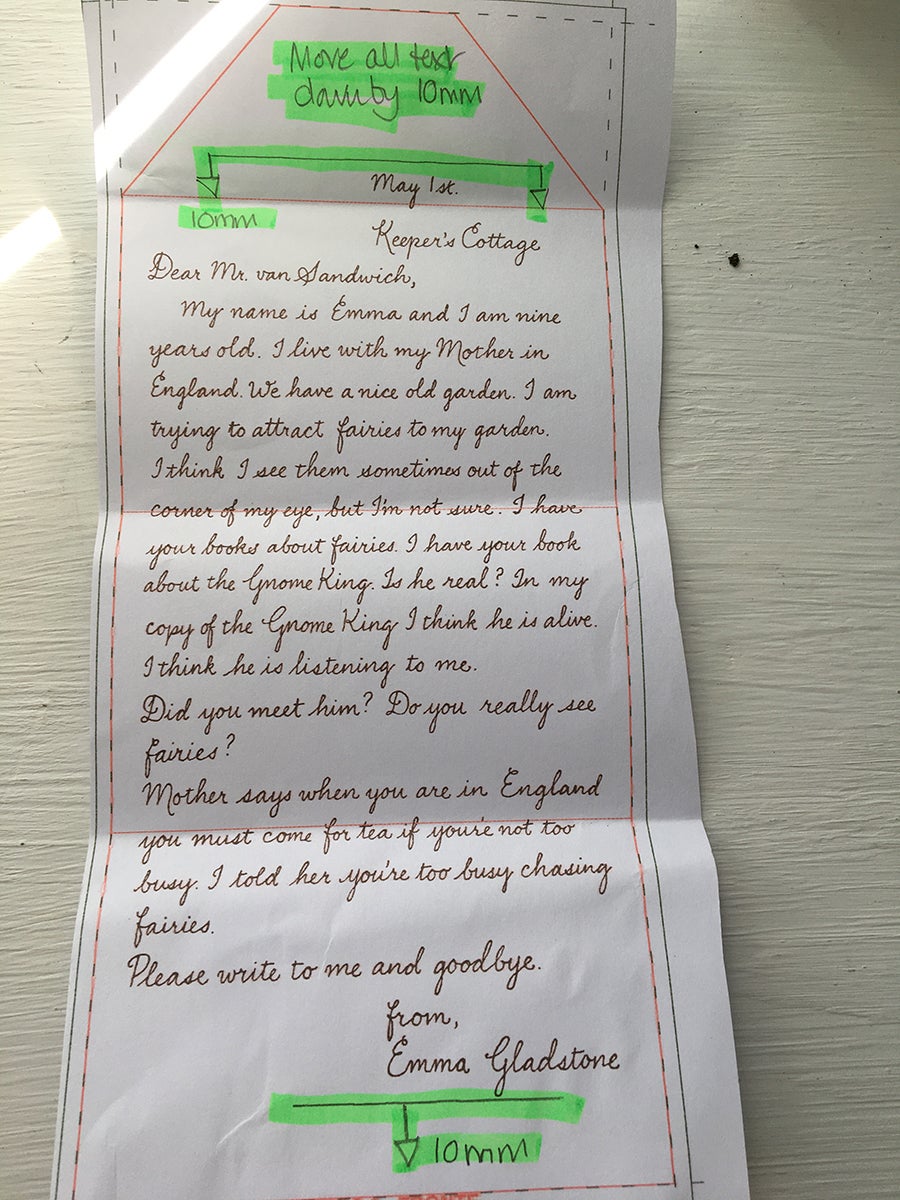 Move all text
down by 10mm
May 1st.
10mm
Keeper's Cottage
Dear Mr. van Sandwich,
My name is Emma and I am nine
years old. I live with my Mother in
England. We have a nice old garden. I am
trying to attract fairies to my garden.
I think I see them sometimes out of the
corner of my eye, but I'm not sure. I have
your books about fairies. I have your book
about the Gnome King. Is he real? In my
copy of the Gnome King I think he is alive.
I think he is listening to me.
Did you meet him? Do you really see
fairies?
Mother says when you are in England
you must come for tea if you're not too
busy. I told her you're too busy chasing
fairies.
Please write to me and goodbye.
from,
Emma Gladstone
10mm